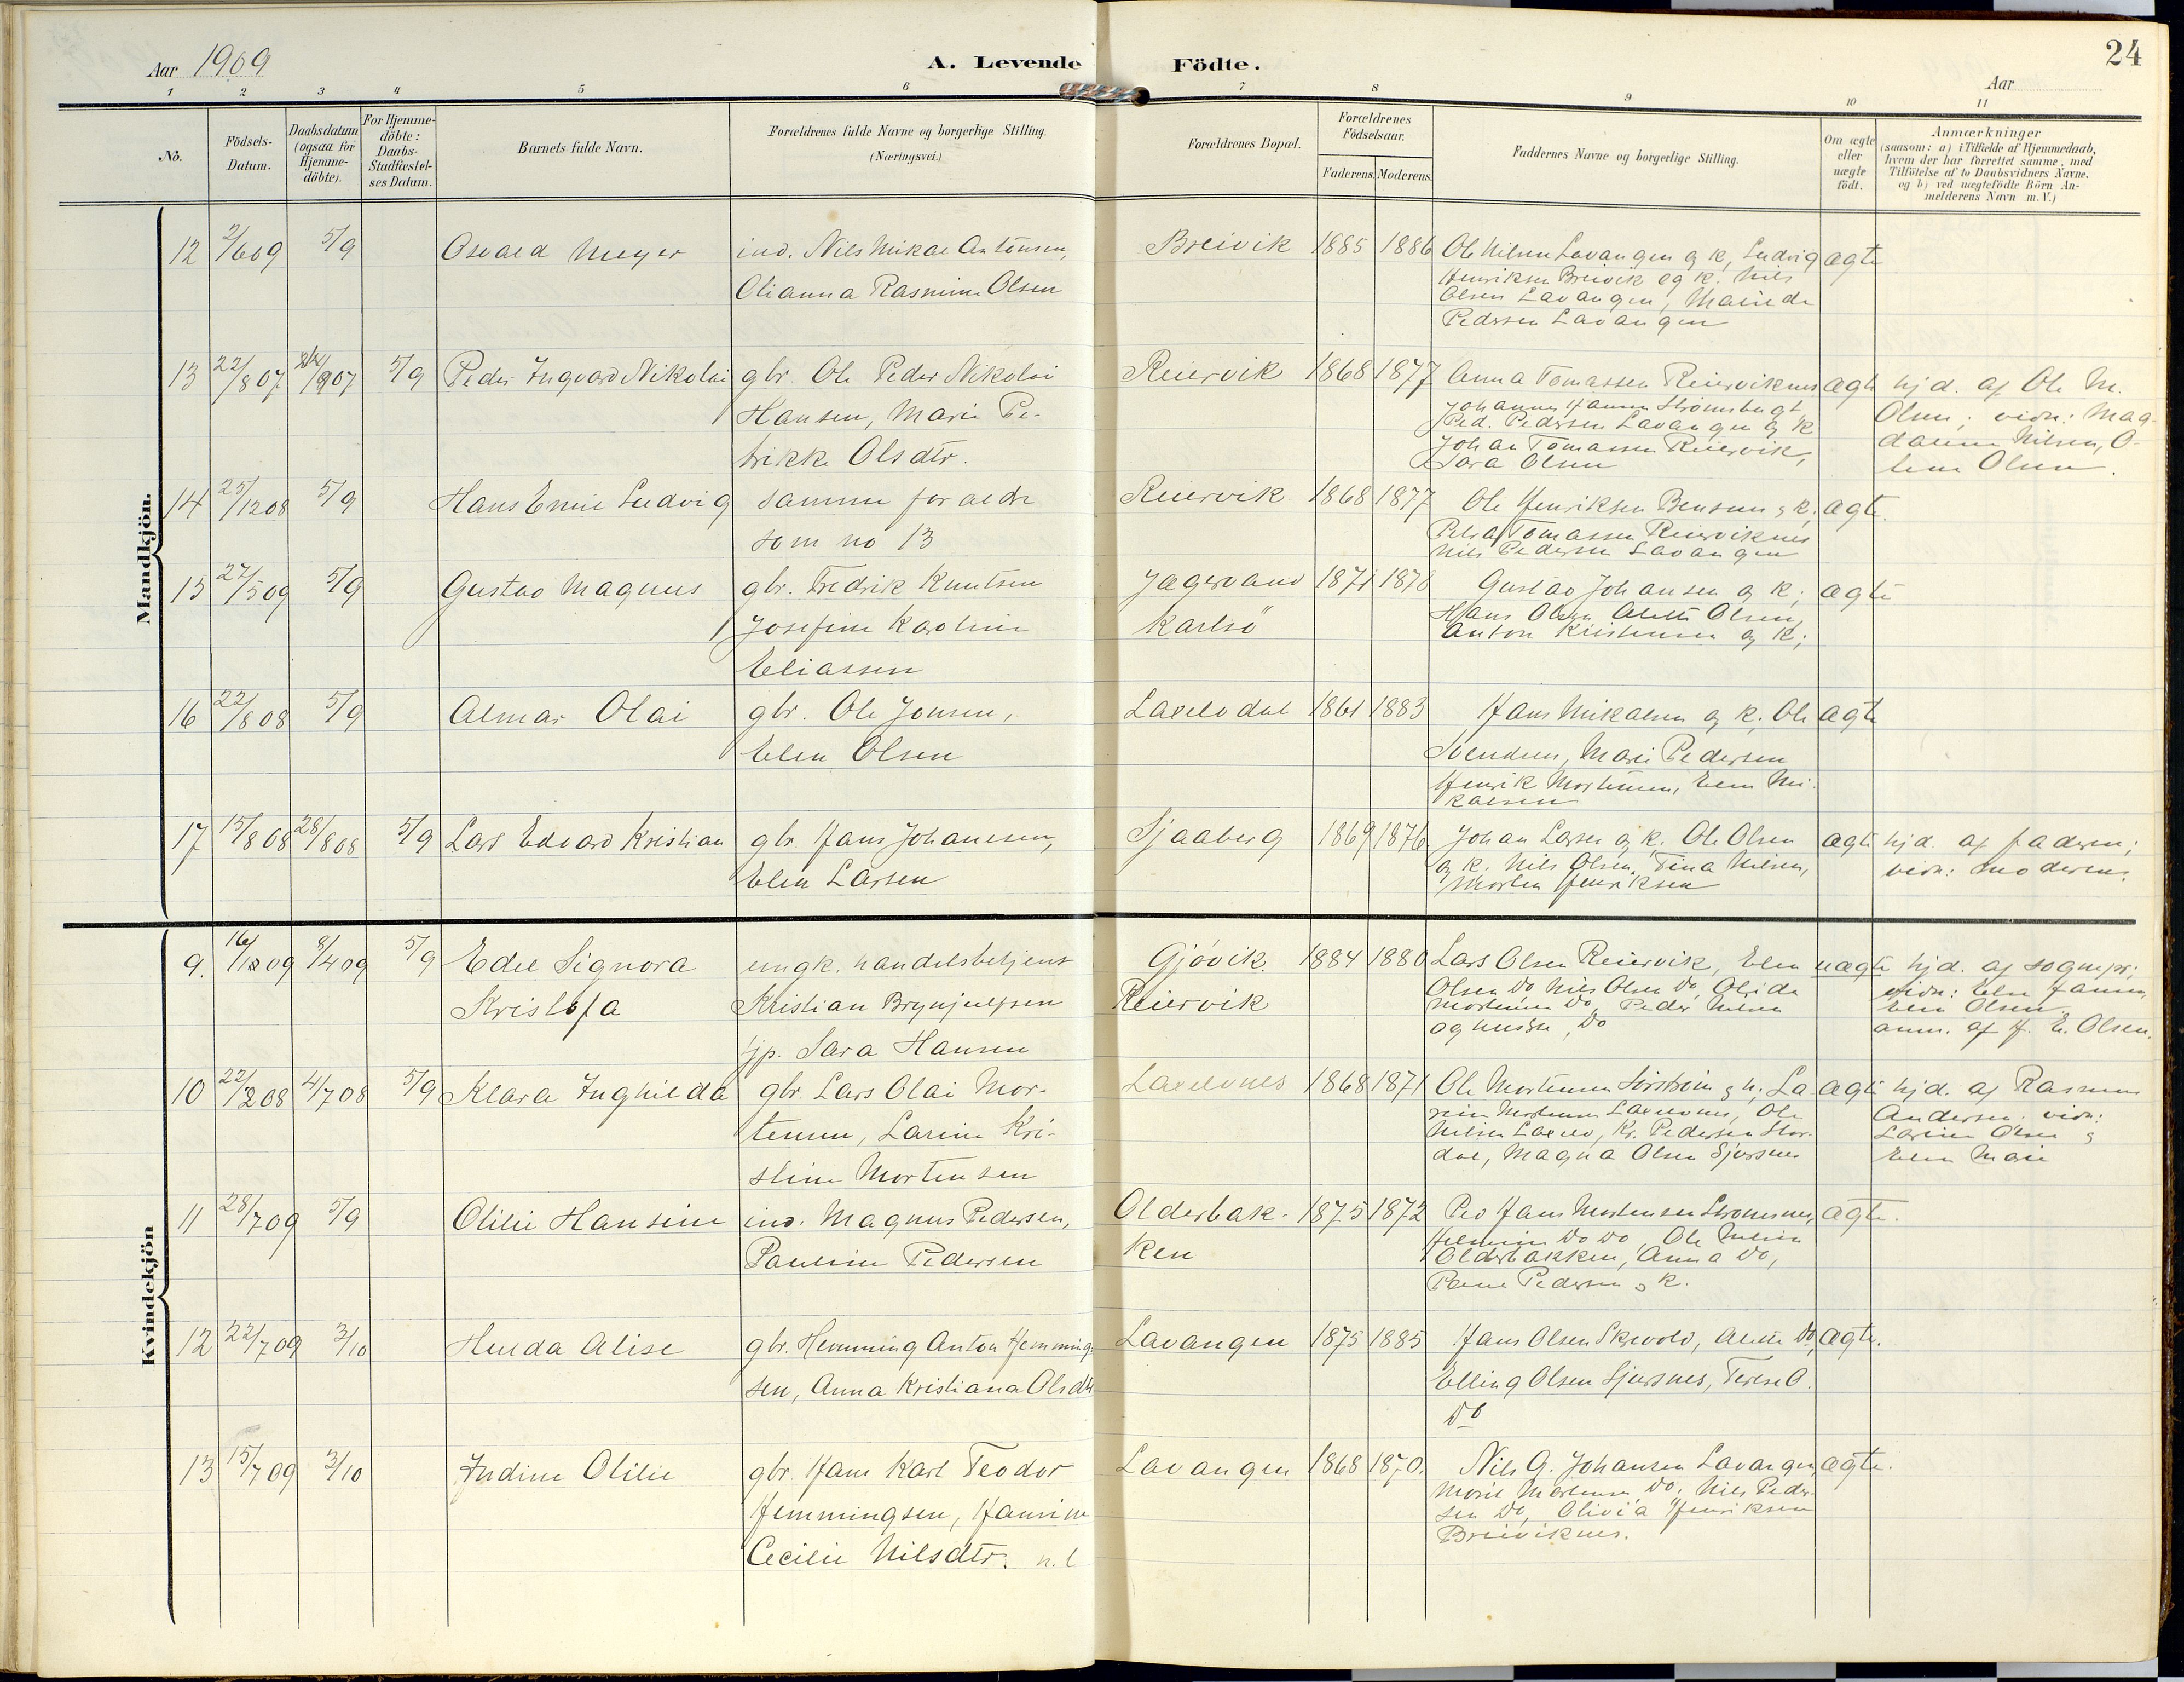 Aar 1909
A. Levende Födte.
24
Aar
1 2 3 4 5 6 7 8 9 10 11
No.
Födsels-Datum.
Daabsdatum (ogsaa for Hjemme-döbte).
For Hjemme-döbte: Daabs-Stadfæstel-ses Datum.
Barnets fulde Navn.
Forældrenes fulde Navne og borgerlige Stilling.
(Næringsvei.)
Forældrenes Bopæl.
Forældrenes Födselsaar.
Faderens. Moderens.
Faddernes Navne og borgerlige Stilling.
Om ægte eller uægte födt.
Anmærkninger
(saasom: a) i Tilfælde af Hjemmedaab,
hvem der har forrettet samme, med
Tilföielse af to Daabsvidners Navne,
og b) ved uægtefödte Börn An-
melderens Navn m. V.)
Mandkjön.
12 2/6 09 5/9 Osvald Meyer ind. Nils Mikal Antonsen, Breivik 1885 1886 Ole Nilsen Lavangen og k, Ludvig ægte
Henriksen Breivik og k. Nils
Olianna Rasmine Olsen Olsen Lavangen,
Pedersen Lavangen
13 22/8 07 07 5/9 Peder Ingvard Nikolai gbr. Ole Peder Nikolai Reiervik 1868 1877 Anna Tomassen Reierviknes ægte hjd. af Ole M.
Hansen, Marie Pe- Johannes Hansen Strömsbugt, Olsen; vidn: Mag-
Ped. Pedersen Lavangen og k
trikke Olsdtr. Johan Tomassen Reiervik, Nilsen, O-
Sara Olsen Olsen.
14 25/12 08 5/9 Hans Emil Ludvig samme foraeldre Reiervik 1868 1877 Ole Henriksen og k, ægte.
som no 13 Tomassen Reierviknes
Nils Pedersen Lavangen
15 27/5 09 5/9 Gustav Magnus gbr. Fredrik Knutsen Jægervand 1871 1878 Gustav Johansen og k; ægte
Josefine Karoline Karlsö Hans Olsen Olsen,
Anton Kristensen og k;
Eliassen
16 22/8 08 5/9 Almar Olai gbr. Ole Jonsen, Laxelvdal 1861 1883 Hans Mikalsen og k, Ole ægte
Elen Olsen Svendsen, Marie Pedersen
Henrik Mortensen, Elen Mi-
kalsen
17 15/8 08 28/8 08 5/9 Lars Edvard Kristian gbr Hans Johanesen, Sjaaberg 1869 1876 Johan Larsen og k. Ole Olsen ægte hjd. af faderen;
Elen Larsen og k. Nils Olsen, Tina Nilsen, vidn: moderen,
Morten Henriksen
Kvindekjön
9. 09 8/4 09 5/9 Edel Signora ungk. handelsbetjent Gjövik. 1884 1880 Lars Olsen Reiervik, Elen uægte hjd. af sognepr;
Kristofa Kristian Brynjulfsen Reiervik Olsen Do Nils Olsen Do, Olida vidn: Hansen,
Mortensen Do, Peder Nilsen Elen Olsen,
og hustru, Do anm. af H. E. Olsen.
jp. Sara Hansen
10 08 4/7 08 5/9 Klara Inghilda gbr. Lars Olai Mor- Laxelvnes 1868 1871 Ole Mortensen og h; La- ægte hjd. af Rasmus
tensen, Larine Kri- rine Mortensen Laxelvnes, Ole Andersen. vidn:
Nilsen Laxelv, Kr. Pedersen Stor- Larine Olsen og
stine Mortensen dal, Magna Olsen Sjursnes Elen Marie
11 28/7 09 5/9 Olilie Hansine ind. Magnus Pedersen, Olderbak- 1875 1872 Ped Hans Mortensen Strömsnes, ægte.
Pauline Pedersen ken Do Do, Ole Nilsen
Olderbakken, Anna Do,
Pedersen og k.
12 22/7 09 3/10 Hulda Alise gbr. Hemming Anton Hemming- Lavangen 1875 1885 Hans Olsen Skjevold, Do, ægte.
sen, Anna Kristiana Olsdtr Elling Olsen Sjursnes, Terese O.
Do
13 15/7 09 3/10 Indine Olilie gbr. Hans Karl Teodor Lavangen 1868 1870. Nils A. Johansen Lavangen, ægte.
Hemmingsen, Hansine Mortensen Do, Nils Peder-
sen Do, Olivia Henriksen
Cecilie Nilsdtr. n. l Breiviknes.